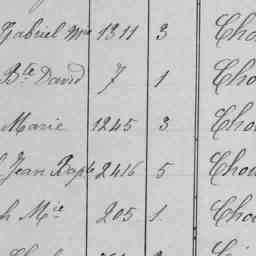 Gabriel Mie 1311 3 Cho
Bte David 7 1 Cho
Marie 1245 3 Cho
Jean Bapte 2416 5 Chou
h Mie 205 1 Chou